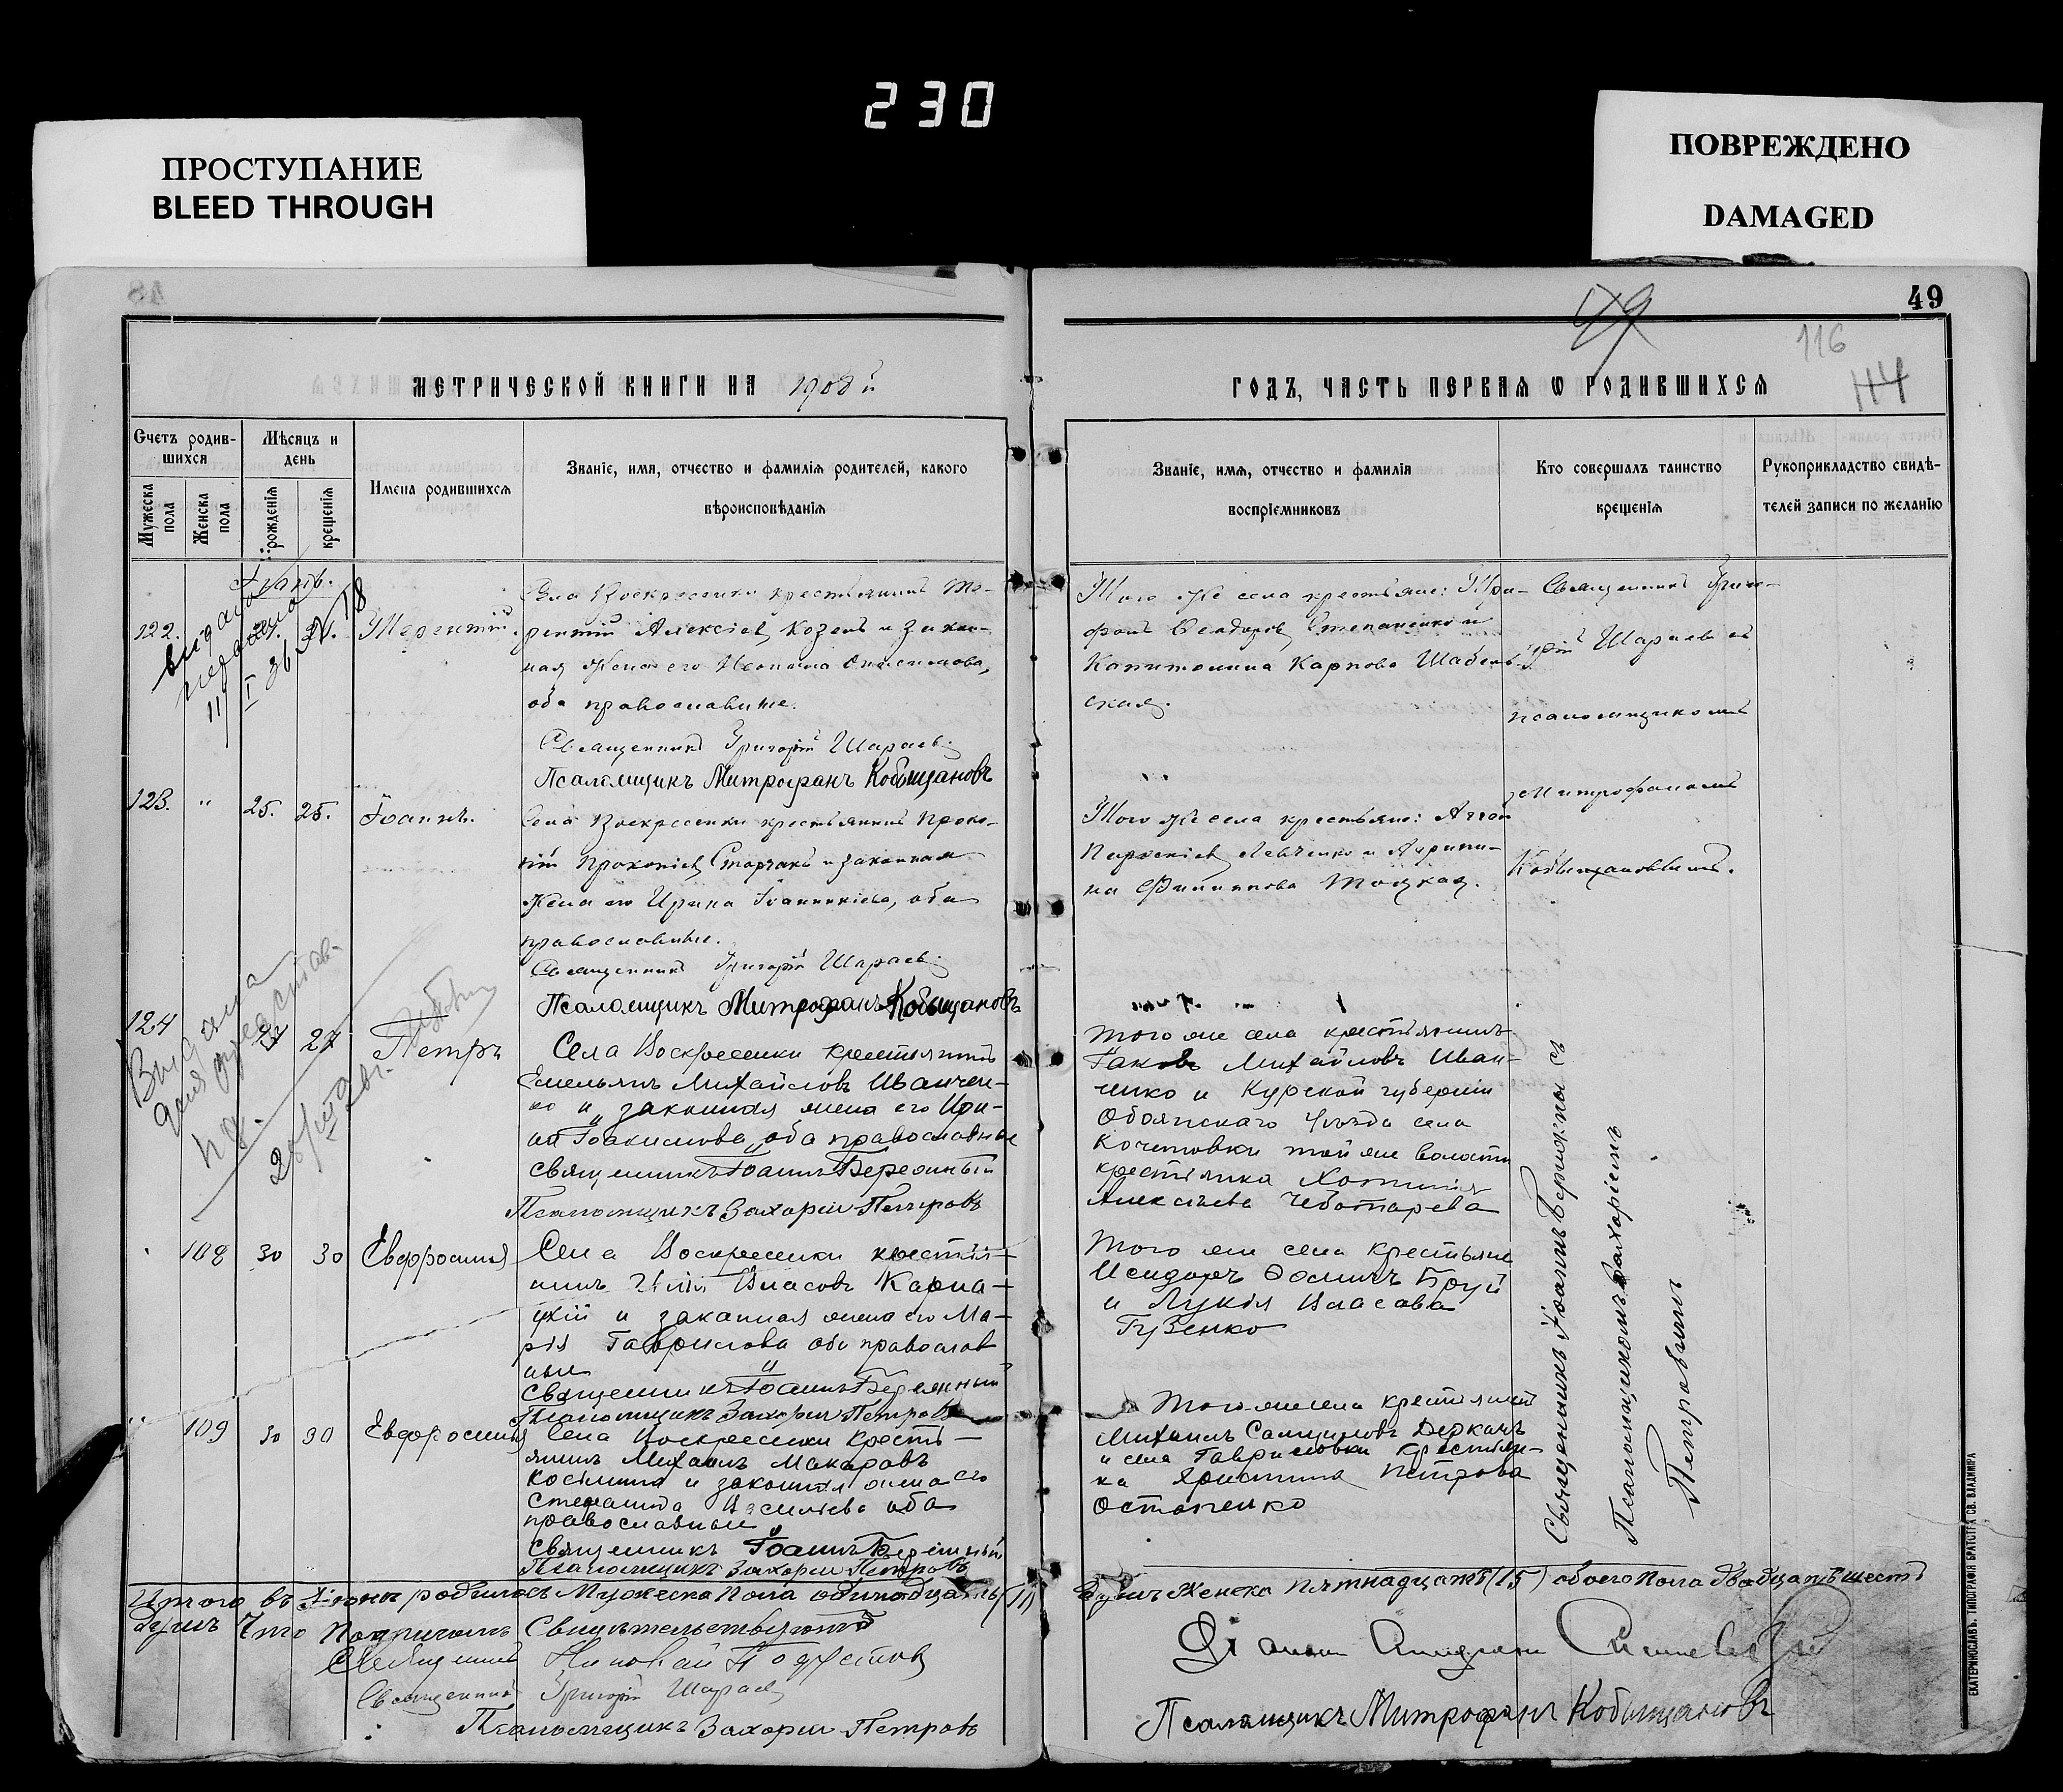 230
ПРОСТУПАНИЕ
BLEED THROUGH
ПОВРЕЖДЕНО
DAMAGED
49
49
116
114
МЕТРИЧЕСКОЙ КНИГИ НА 1908 й
ГОДЪ, ЧАСТЬ ПЕРВАЯ Ѡ РОДИВШИХСЯ
Счетъ родив-
шихся
Мужеска пола
Женска пола
Мѣсяцъ и
день
рожденія
крещенія
Имена родившихся
Званіе, имя, отчество и фамилія родителей, какого
вѣроисповѣданія
Званіе, имя, отчество и фамилія
воспріемниковъ
Кто совершалъ таинство
крещенія
Рукоприкладство свидѣ-
телей записи по желанію
122.
Терентій.
Села Воскресенки крестьянинъ Те-
рентій Алексіевъ Козелъ и закон-
ная жена его Онисимова,
оба православные.
Священникъ Григорій Шараевъ.
Псаломщикъ Митрофанъ Кобыщановъ
Того же села крестьяне: Три-
фонъ Ѳеодоровъ Степаненко и
Капитолина Карпова Шабель-
ская.
Священникъ Григо-
рій Шараевъ съ
псаломщикомъ
Митрофаномъ
Кобыщановымъ.
123. " 25. 25. Іоаннъ.
Села Воскресенки крестьянинъ Проко-
пій Прокопіевъ Старчакъ и законная
жена его Ирина Іоанникіева, оба
православные.
Священникъ Григорій Шараевъ.
Псаломщикъ Митрофанъ Кобыщановъ
Того же села крестьяне:
Левченко и Агрипи-
на Филиппова Тоцкая.
124 27 27 Петръ
Села Воскресенки крестьянинъ
Емельянъ Михайловъ Иванчен-
ко и законная жена его Ири-
на Іоакимова, оба православные
Священникъ Іоаннъ Бережный
Псаломщикъ Захарій Петровъ
Того же села крестьянинъ
Іаковъ Михайловъ Иван-
ченко и Курской губерніи
Обоянскаго уѣзда села
Кочетовки той же волости
крестьянка
Алексѣева Чеботарева
108 30 30 Евфросинія
Села Воскресенки крестья-
нинъ Илія Власовъ Карна-
цкій и законная жена его Ма-
рія Гаврилова оба православ
ные
Священникъ Іоаннъ Бережный
Псаломщикъ Захарій Петровъ
Того же села крестьяне
Исидоръ Ѳоминъ Бруй
и Лукія Власова
Гузенко
109 30 30 Евфросинія
Села Воскресенки кресть-
янинъ Михаилъ Макаровъ
и законная жена его
Стефанида Васильева оба
православные
Священникъ Іоаннъ Бережный
Псаломщикъ Захарій Петровъ
Того же села крестьянинъ
Михаилъ Самуиловъ Деркачъ
и села Гавриловки крестьян-
ка Христина Петрова
Остапенко
Священникъ Іоаннъ Бережный съ
Псаломщикомъ Захаріемъ
Петровымъ
Выдана
для представ.
Итого въ Іюнѣ родилось Мужеска Пола одинадцать (11)
душъ Женска пятнадцать (15) обоего Пола двадцать шесть
душъ Что Подписомъ Свидѣтельствуютъ
Священникъ Николай
Священникъ Григорій Шараевъ
Псаломщикъ Захарій Петровъ
Діаконъ
Псаломщикъ Митрофанъ Кобыщановъ
ЕКАТЕРИНОСЛАВЪ. ТИПОГРАФІЯ БРАТСТВА СВ. ВЛАДИМІРА